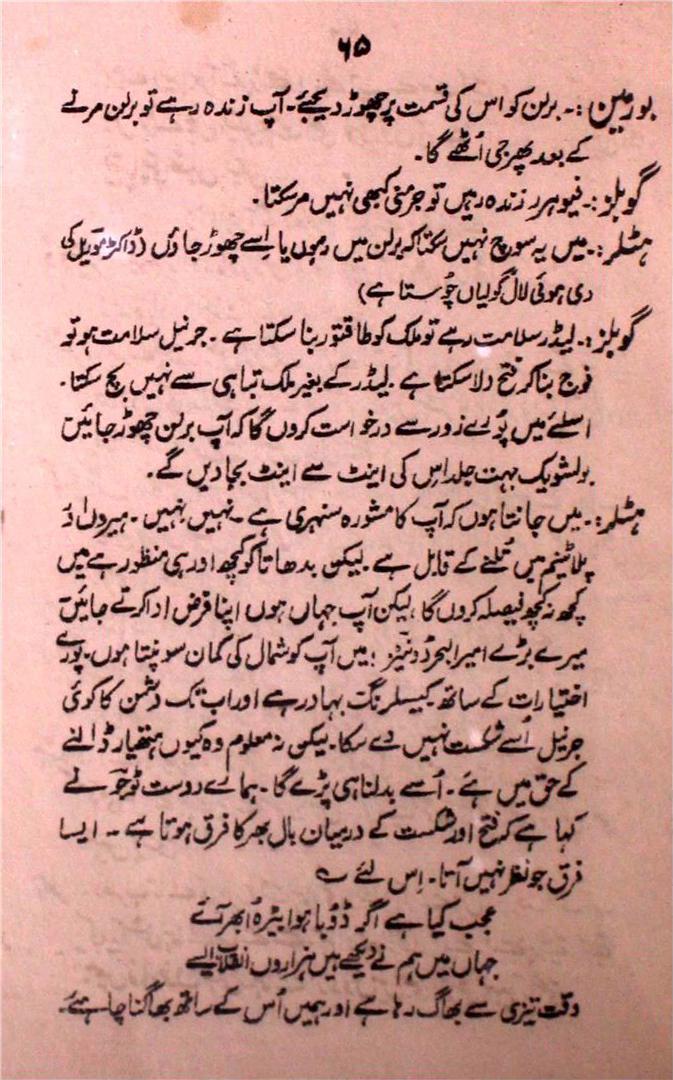 ۶۵
بورمین:۔ برلن کو اس کی قسمت پر چھوڑ دیجئے۔ آپ زندہ رہے تو برلن مرنے
کے بعد پھر جی اُٹھے گا۔
گوبلز:۔ فیوہرر زندہ رہیں تو جرمنی کبھی نہیں مرسکتا۔
ہٹلر:۔ میں یہ سوچ نہیں سکتا کہ برلن میں رہوں یا اِسے چھوڑ جاؤں (ڈاکٹر موریل کی
دی ہوئی لال گولیاں چُوستا ہے)
گوبلز:۔ لیڈر سلامت رہے تو ملک کو طاقتور بنا سکتا ہے۔ جرنیل سلامت ہو تو
فوج بنا کر فتح دلا سکتا ہے۔ لیڈر کے بغیر ملک تباہی سے نہیں بچ سکتا۔
اسلئے میں پُورے زور سے درخواست کروں گا کہ آپ برلن چھوڑ جائیں
بولشویک بہت جلد اس کی اینٹ سے اینٹ بجا دیں گے۔
ہٹلر:۔ میں جانتا ہوں کہ آپ کا مشورہ سنہری ہے۔ نہیں نہیں۔ ہیروں اور
پلاٹینم میں تُلنے کے قابل ہے۔ لیکن بدھاتا کو کچھ اور ہی منظور ہے میں
کچھ نہ کچھ فیصلہ کروں گا، لیکن آپ جہاں ہوں اپنا فرض ادا کرتے جائیں
میرے بڑے امیر البحر ڈونیز! میں آپ کو شمال کی کمان سونپتا ہوں۔ پورے
اختیارات کے ساتھ کیسلرنگ بہادر ہے اور اب تک دشمن کا کوئی
جرنیل اُسے شکست نہیں دے سکا۔ لیکن نہ معلوم وہ کیوں ہتھیار ڈالنے
کے حق میں ہے۔ اُسے بدلنا ہی پڑے گا۔ ہمارے دوست توجو نے
کہا ہے کہ فتح اور شکست کے درمیان بال بھر کا فرق ہوتا ہے۔ ایسا
فرق جو نظر نہیں آتا۔ اِس لئے ؎
عجب کیا ہے اگر ڈوبا ہوا بیڑہ اُبھر آئے
جہاں میں ہم نے دیکھے ہیں ہزاروں انقلاب ایسے
وقت تیزی سے بھاگ رہا ہے اور ہمیں اُس کے ساتھ بھاگنا چاہئے۔